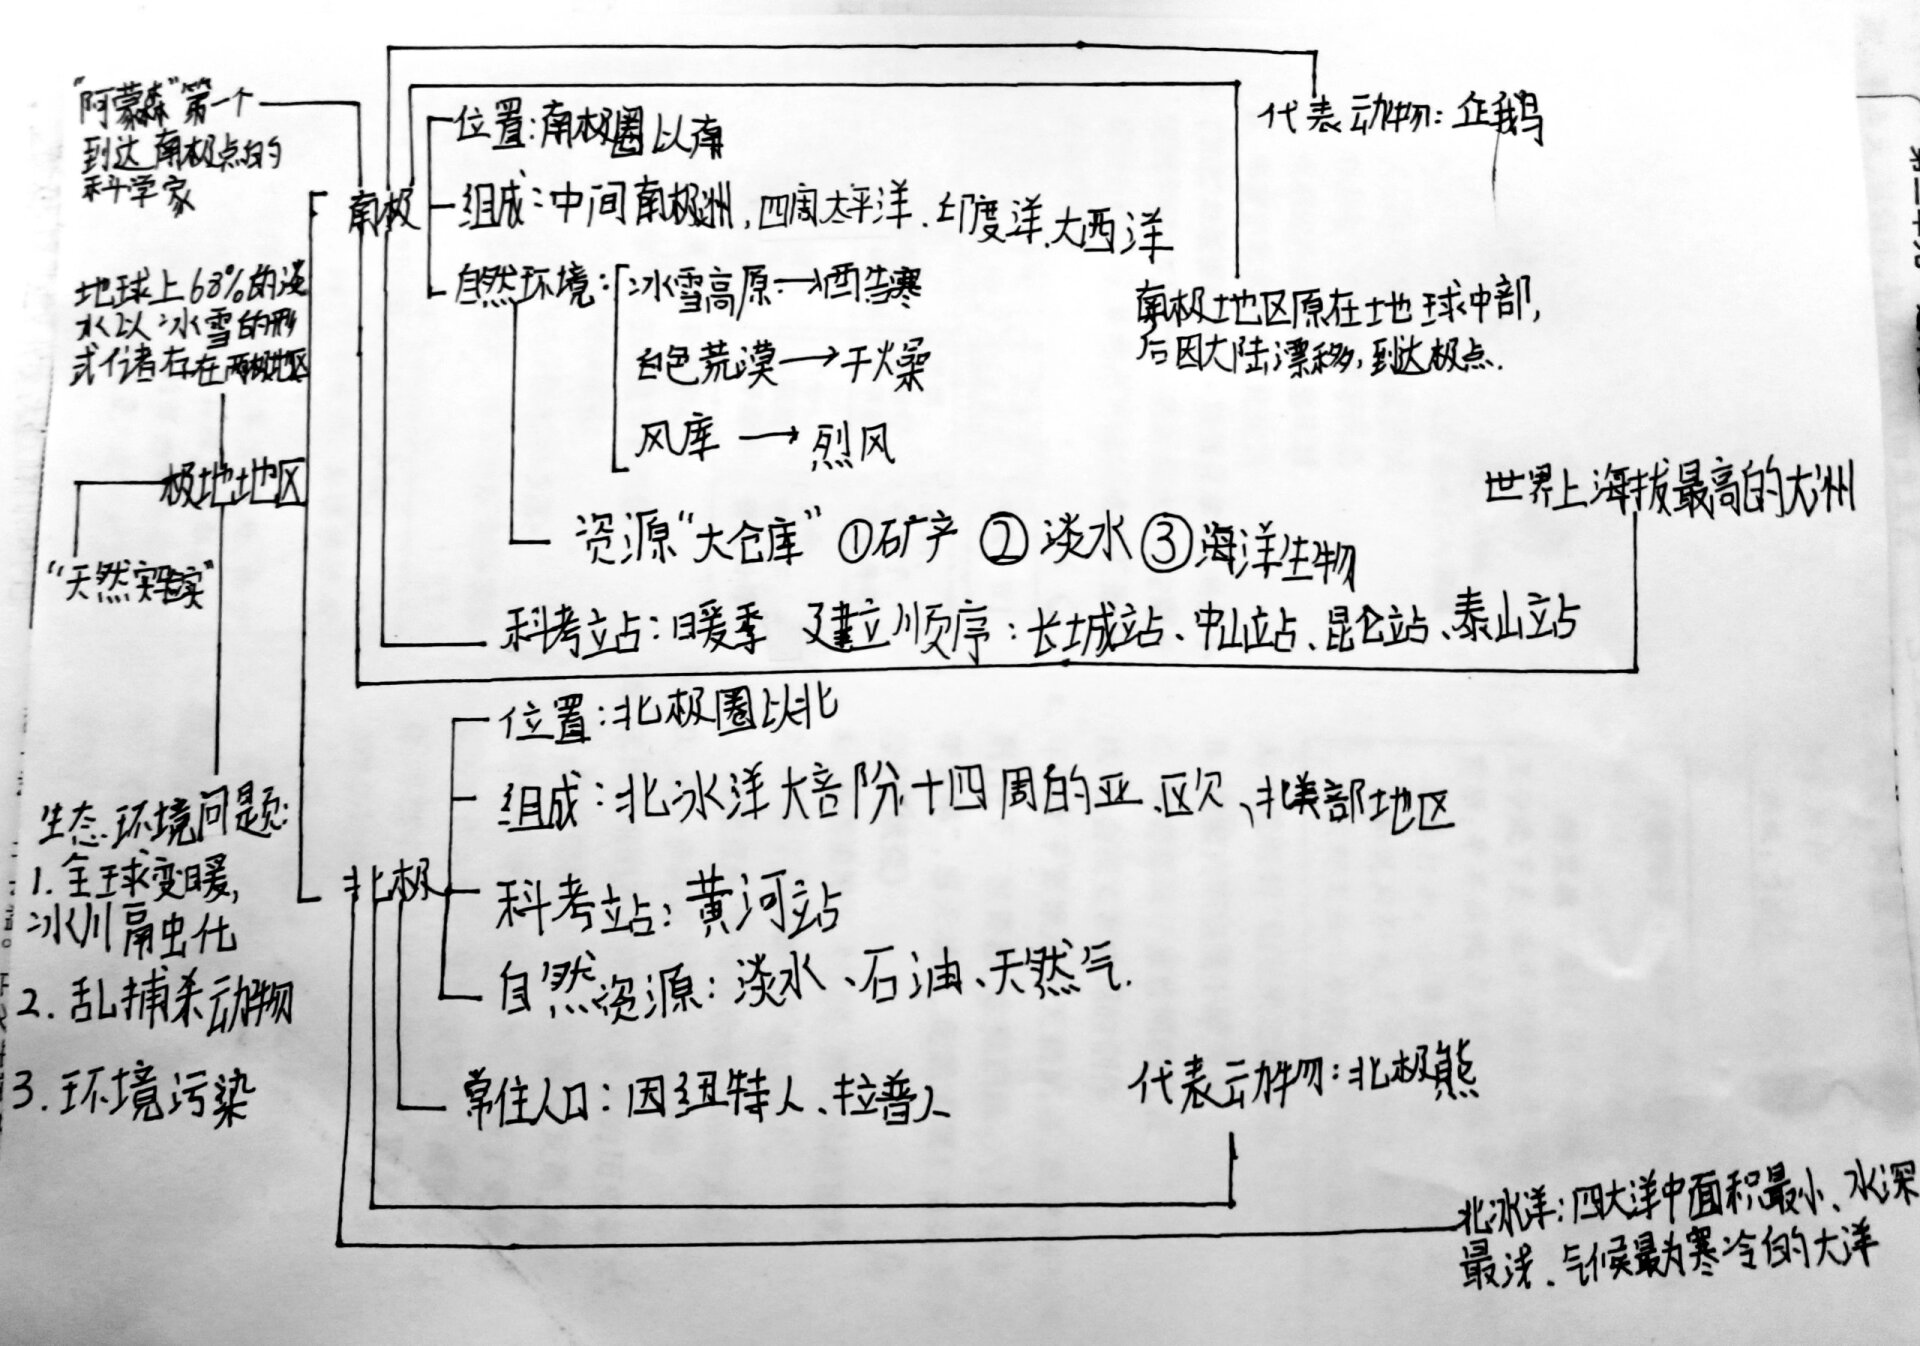 "阿蒙森"第一个
到达南极点的
科学家
地球上68%的淡
水以冰雪的形
式储存在两极地区
极地地区
"天然实验室"
生态环境问题:
1.全球变暖,
冰川融化
2.乱捕杀动物
3.环境污染
南极
位置:南极圈以南
组成:中间南极洲,四周太平洋、印度洋、大西洋
自然环境:
冰雪高原→酷寒
白色荒漠→干燥
风库→烈风
资源"大仓库" ①矿产 ②淡水 ③海洋生物
科考站:暖季 建立顺序:长城站、中山站、昆仑站、泰山站
代表动物:企鹅
南极地区原在地球中部,
后因大陆漂移,到达极点.
世界上海拔最高的大洲
北极
位置:北极圈以北
组成:北冰洋大部份+四周的亚、欧、北美部地区
科考站:黄河站
自然资源:淡水、石油、天然气.
常住人口:因纽特人、拉普人
代表动物:北极熊
北冰洋:四大洋中面积最小、水深
最浅、气候最为寒冷的大洋